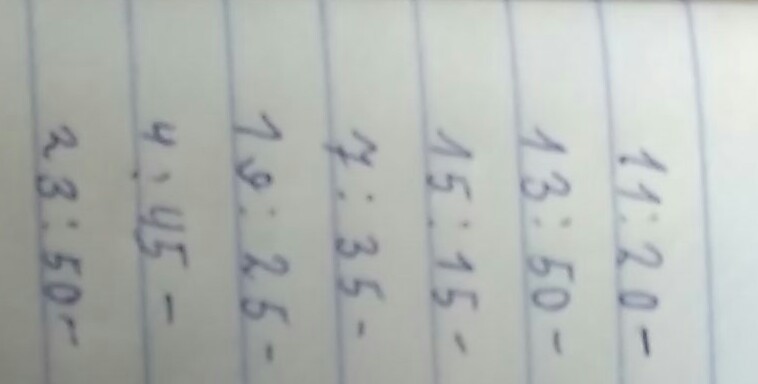 11:20-
13:50-
15:15-
7:35-
19:25-
4:45-
23:50-